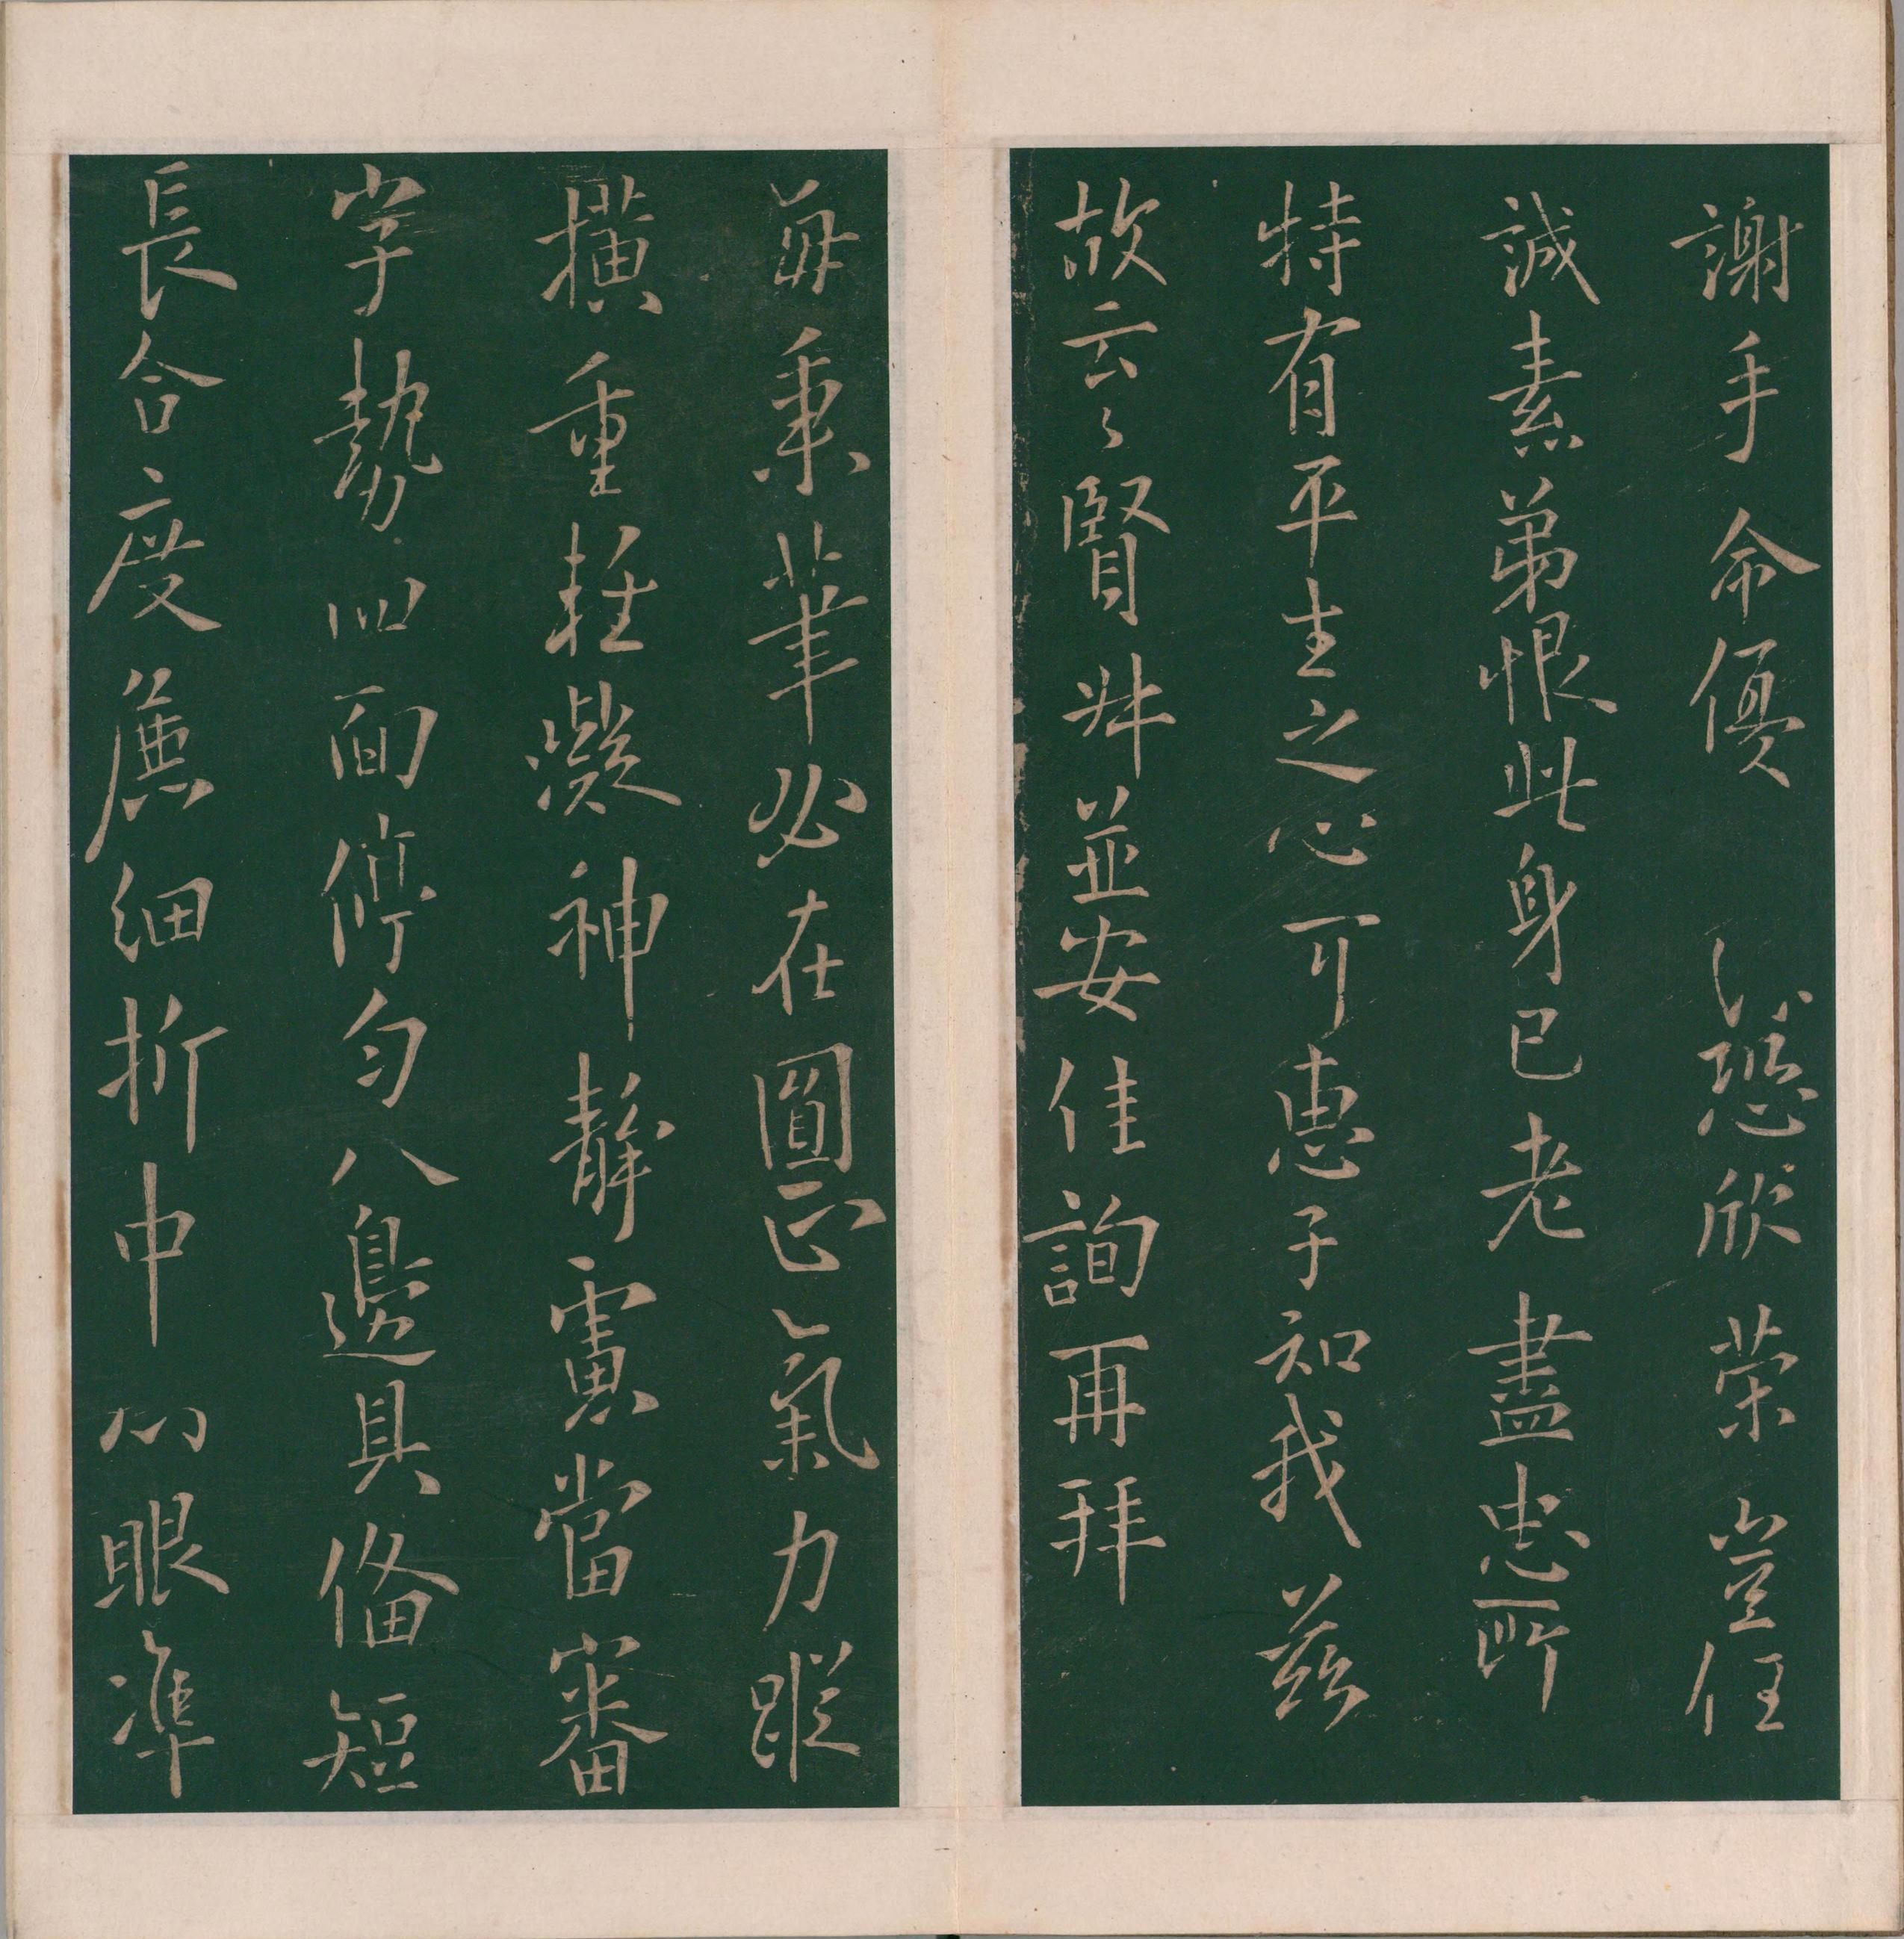 謝手命優以恐欣荣豈任
誠素弟恨此身已老盡忠所
特有平生之心可惠子知我兹
故云々賢並安佳詢再拜
每秉筆必在圓正氣力蹤
橫重輕凝神靜慮當審
字勢四面停勻八邊具俻短
長合度麁細折中心眼準